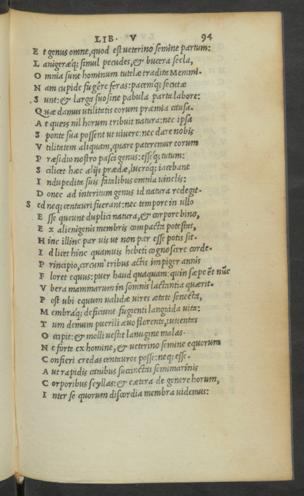 LIB. V 94
E t genus omne, quod est ueterino semine partum:
L anigeraeq; simul pecudes, & bucera secla,
O mnia sunt hominum tutelae tradita Memmi.
N am cupide fugêre feras: pacemq; secutae
S unt: & larga suo sine pabula parta labore:
Q uae damus utilitatis eorum praemia causa.
A t queis nil horum tribuit natura: nec ipsa
S ponte sua possent ut uiuere: nec dare nobis
V tilitatem aliquam, quare pateremur eorum
P raesidio nostro pasci genus: esseq; tutum:
S cilicet haec alijs praedae, lucroq; iacebant
I ndupedita suis fatalibus omnia uinclis:
D onec ad interitum genus id natura redegit.
S ed neq; centauri fuerunt: nec tempore in ullo
E sse queunt duplici natura, & corpore bino,
E x alienigenis membris compacta potestas,
H inc illinc par uis ut non par esse potis sit.
I d licet hinc quamuis hebeti cognoscere corde.
P rincipio, circum tribus actis impiger annis
F loret equus: puer haud quaquam: quin saepe et nunc
V bera mammarum in somnis lactantia quaerit.
P ost ubi equum ualidae uires aetate senecta,
M embraq; deficiunt fugienti languida uita:
T um demum puerili aeuo florente, iuuentas
O ccipit: & molli uestit lanugine malas.
N e forte ex homine, & ueterino semine equorum
C onfieri credas centauros posse: neq; esse.
A ut rapidis canibus succinctas semimarinis
C orporibus scyllas: & caetera de genere horum,
I nter se quorum discordia membra uidemus: